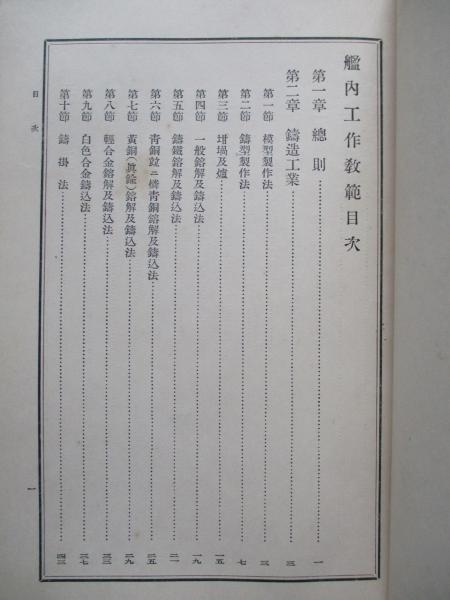 艦內工作敎範目次
第一章 總則……一
第二章 鑄造工業……三
第一節 模型製作法……三
第二節 鑄型製作法……七
第三節 坩堝及爐……一五
第四節 一般鎔解及鑄込法……一九
第五節 鑄鐵鎔解及鑄込法……二一
第六節 靑銅竝ニ燐靑銅鎔解及鑄込法……二五
第七節 黃銅(眞鍮)鎔解及鑄込法……二九
第八節 輕合金鎔解及鑄込法……三三
第九節 白色合金鑄込法……三七
第十節 鑄掛法……四三
目次
一